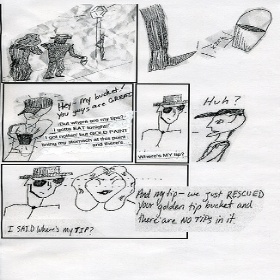 Hey, my bucket!
You guys are GREAT.
But where are my tips?
I gotta EAT tonight!
I got nothin' but GOLD PAINT
lining my stomach at this point
and there's
Where's MY tip?
Huh?
I SAID Where's my TIP?
And my tip – we just RESCUED
your golden tip bucket and
there are NO TIPS in it.